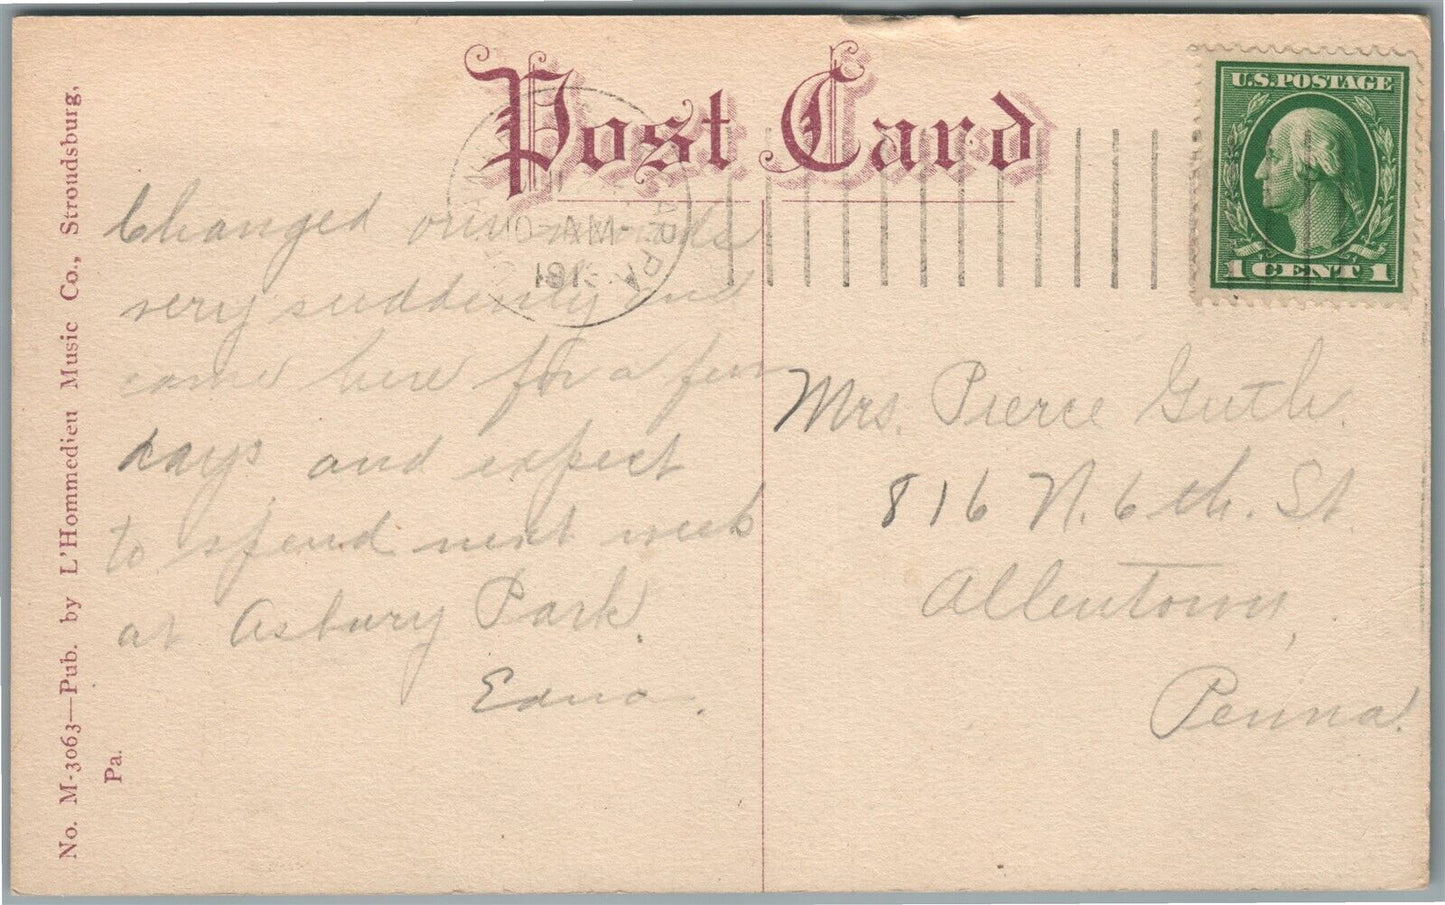 Post Card
U.S. POSTAGE
1 CENT 1
10-AM
191
Changed our minds
very suddenly and
came here for a few
days and expect
to spend next week
at Asbury Park.
Edna.
Mrs. Pierce Guth.
816 N. 6th. St.
Allentown,
Penna.
No. M-3063—Pub. by L'Hommedieu Music Co., Stroudsburg,
Pa.